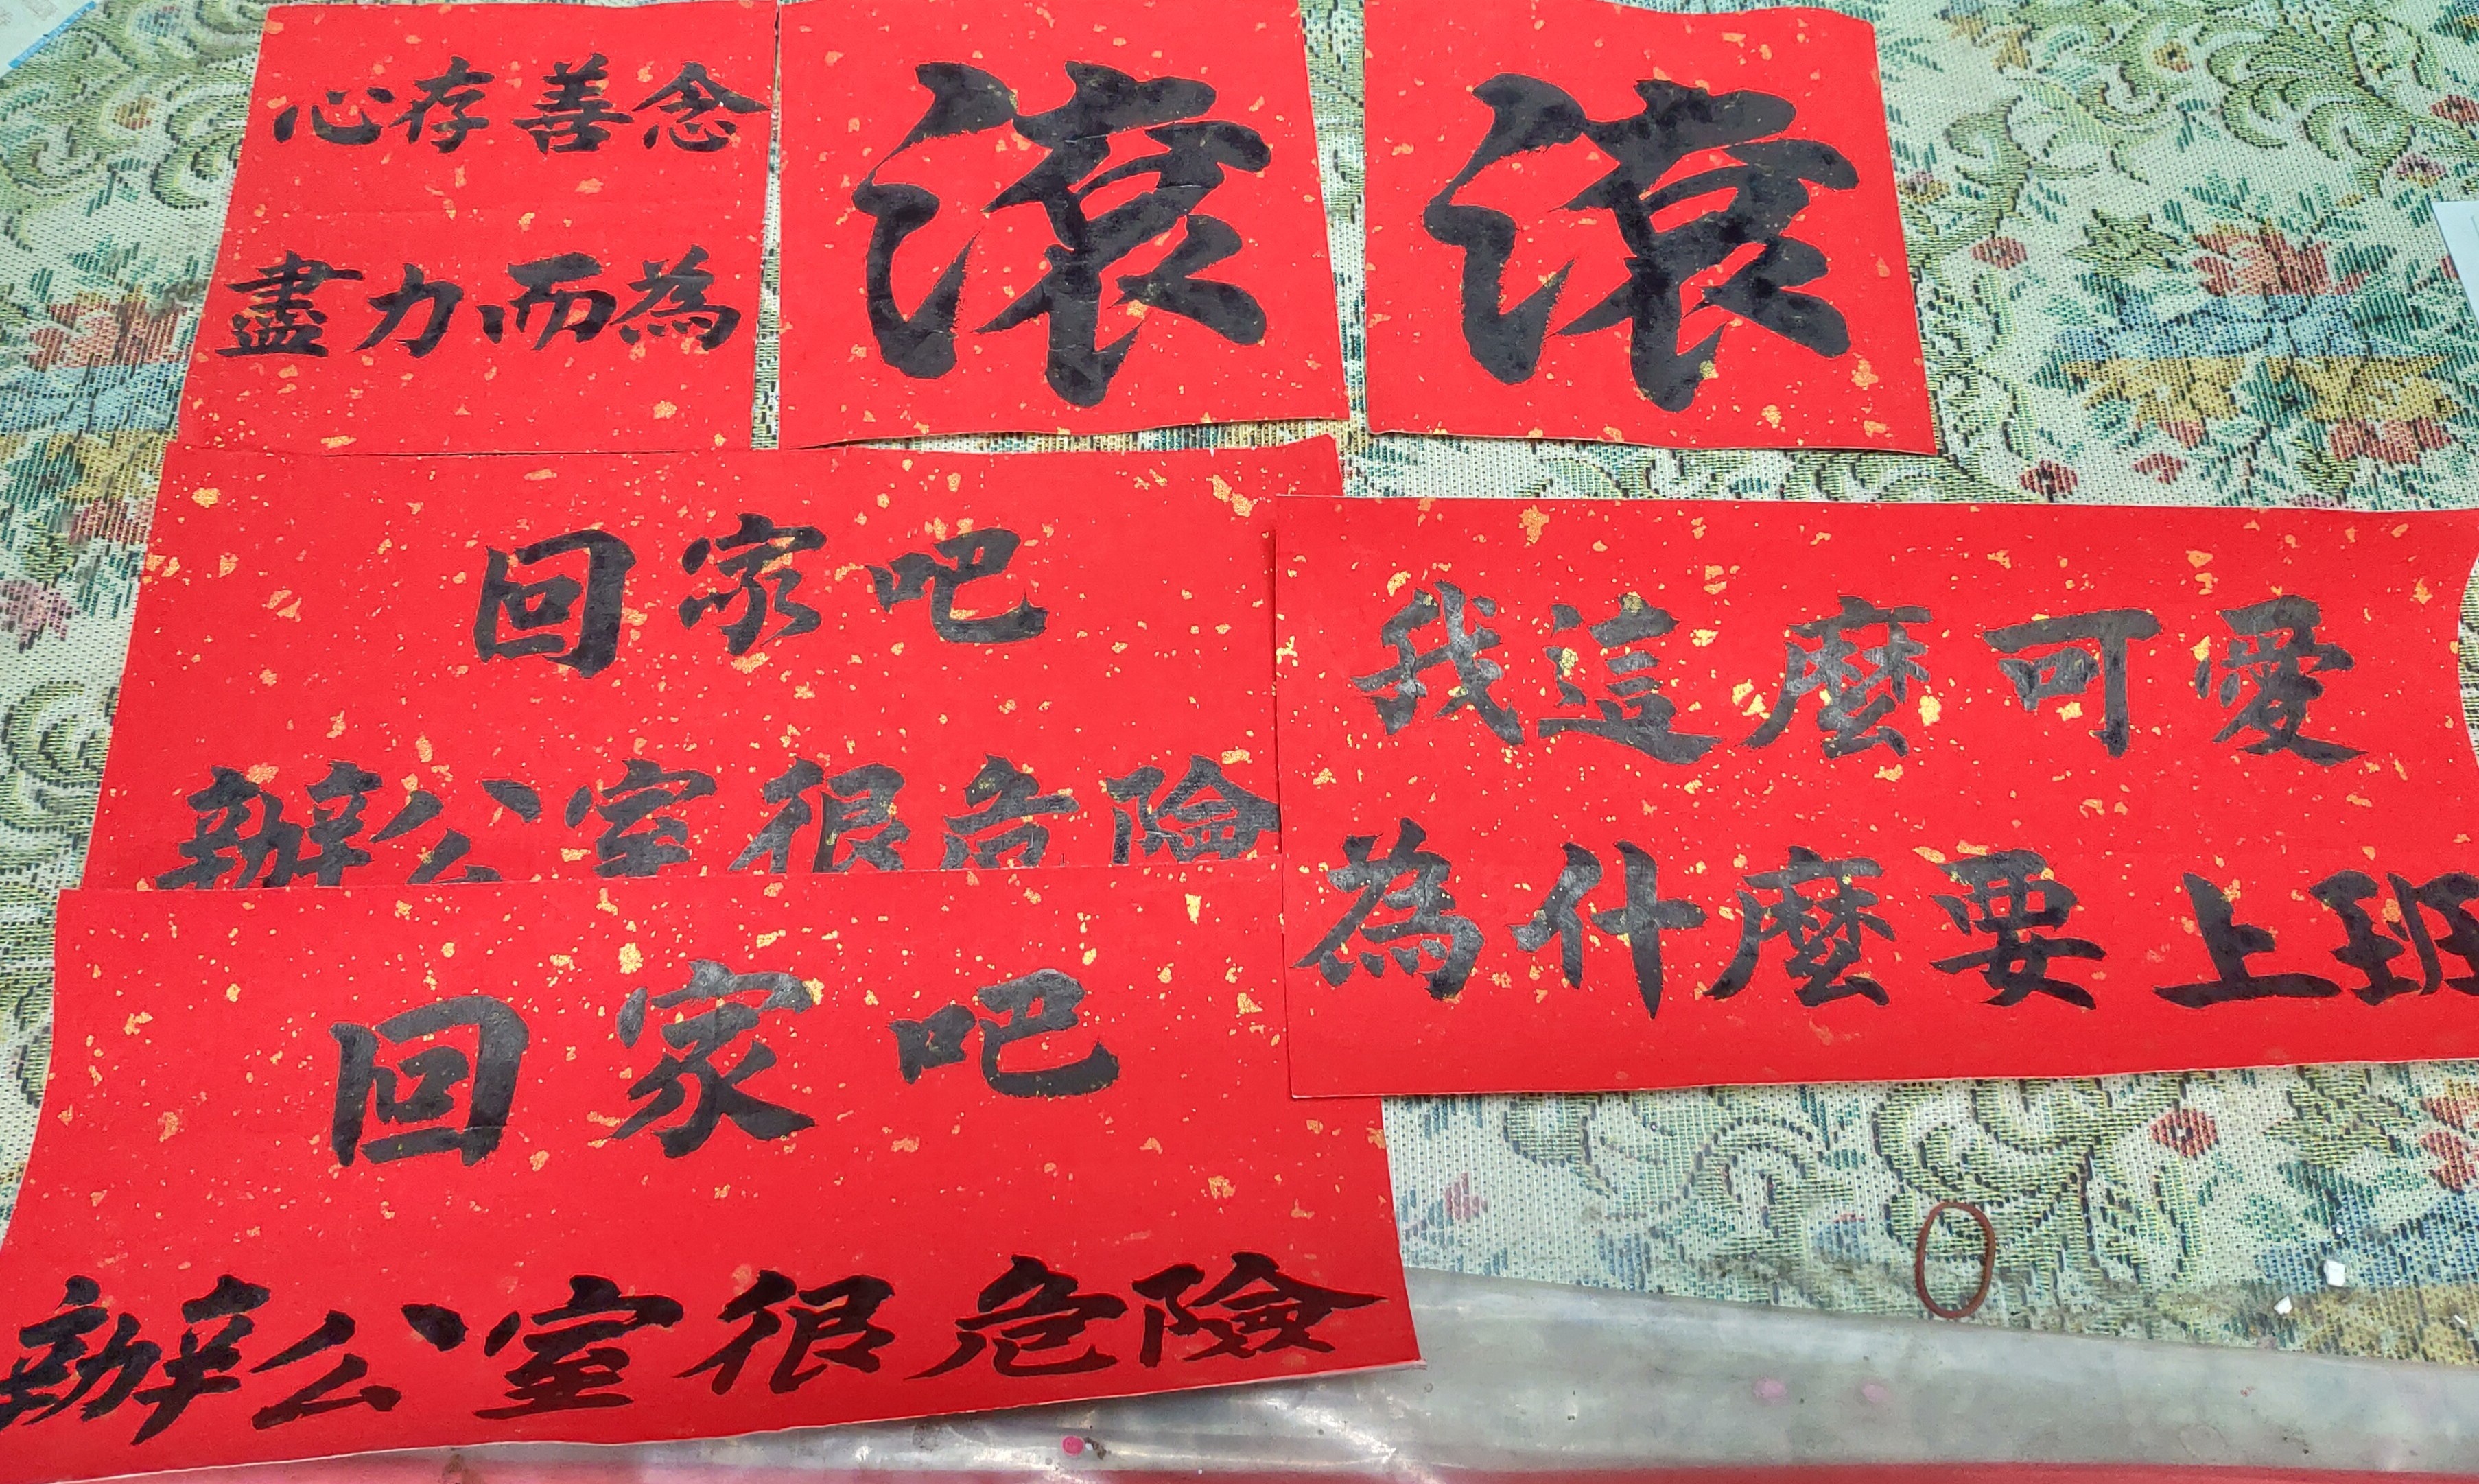 心存善念
盡力而為
滾
滾
回家吧
辦公室很危險
我這麼可愛
為什麼要上班
回家吧
辦公室很危險